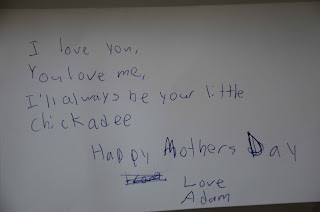 I love you,
You love me,
I'll always be your little
chickadee
Happy Mothers Day
Love
Adam